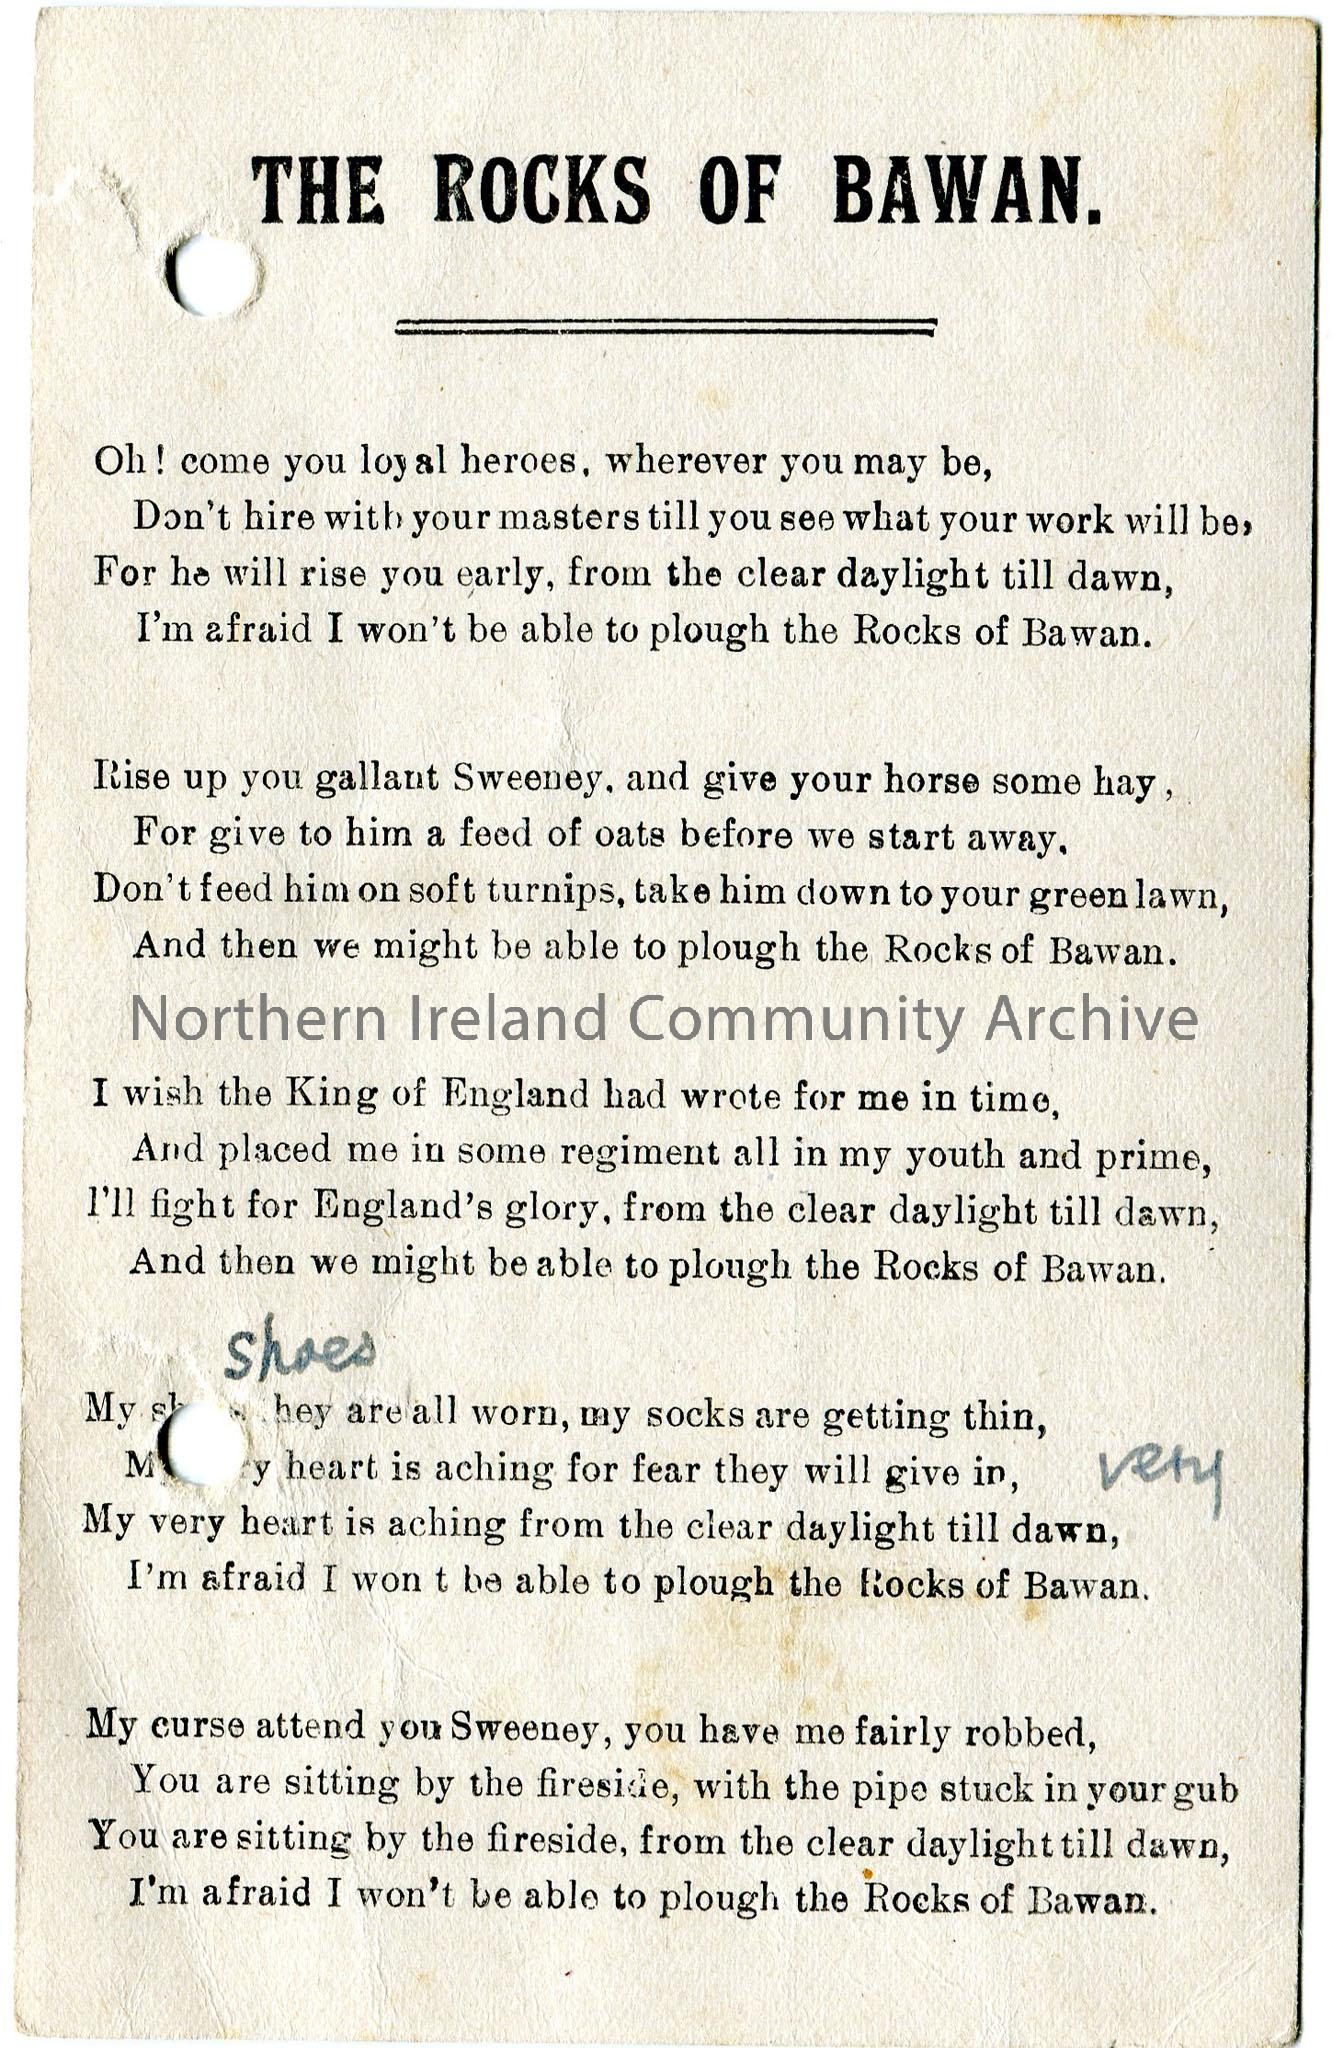 THE ROCKS OF BAWAN.
Oh! come you loyal heroes, wherever you may be,
Don't hire with your masters till you see what your work will be,
For he will rise you early, from the clear daylight till dawn,
I'm afraid I won't be able to plough the Rocks of Bawan.
Rise up you gallant Sweeney, and give your horse some hay,
For give to him a feed of oats before we start away.
Don't feed him on soft turnips, take him down to your green lawn,
And then we might be able to plough the Rocks of Bawan.
Northern Ireland Community Archive
I wish the King of England had wrote for me in time,
And placed me in some regiment all in my youth and prime,
I'll fight for England's glory, from the clear daylight till dawn,
And then we might be able to plough the Rocks of Bawan.
shoes
My hey are all worn, my socks are getting thin,
y heart is aching for fear they will give in, very
My very heart is aching from the clear daylight till dawn,
I'm afraid I won t be able to plough the Rocks of Bawan.
My curse attend you Sweeney, you have me fairly robbed,
You are sitting by the fireside, with the pipe stuck in your gub
You are sitting by the fireside, from the clear daylight till dawn,
I'm afraid I won't be able to plough the Rocks of Bawan.